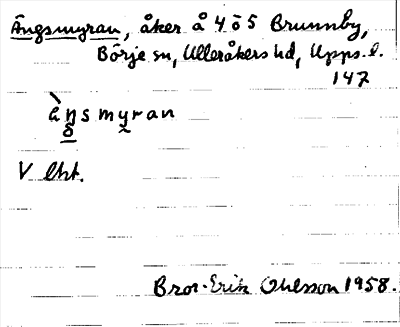 Ängsmyran, åker å 4 o 5 Brunnby,
Börje sn, Ulleråkers hd, Upps. l.
147
àŋsmyran
V lht.
Bror-Erik Ohlsson 1958.